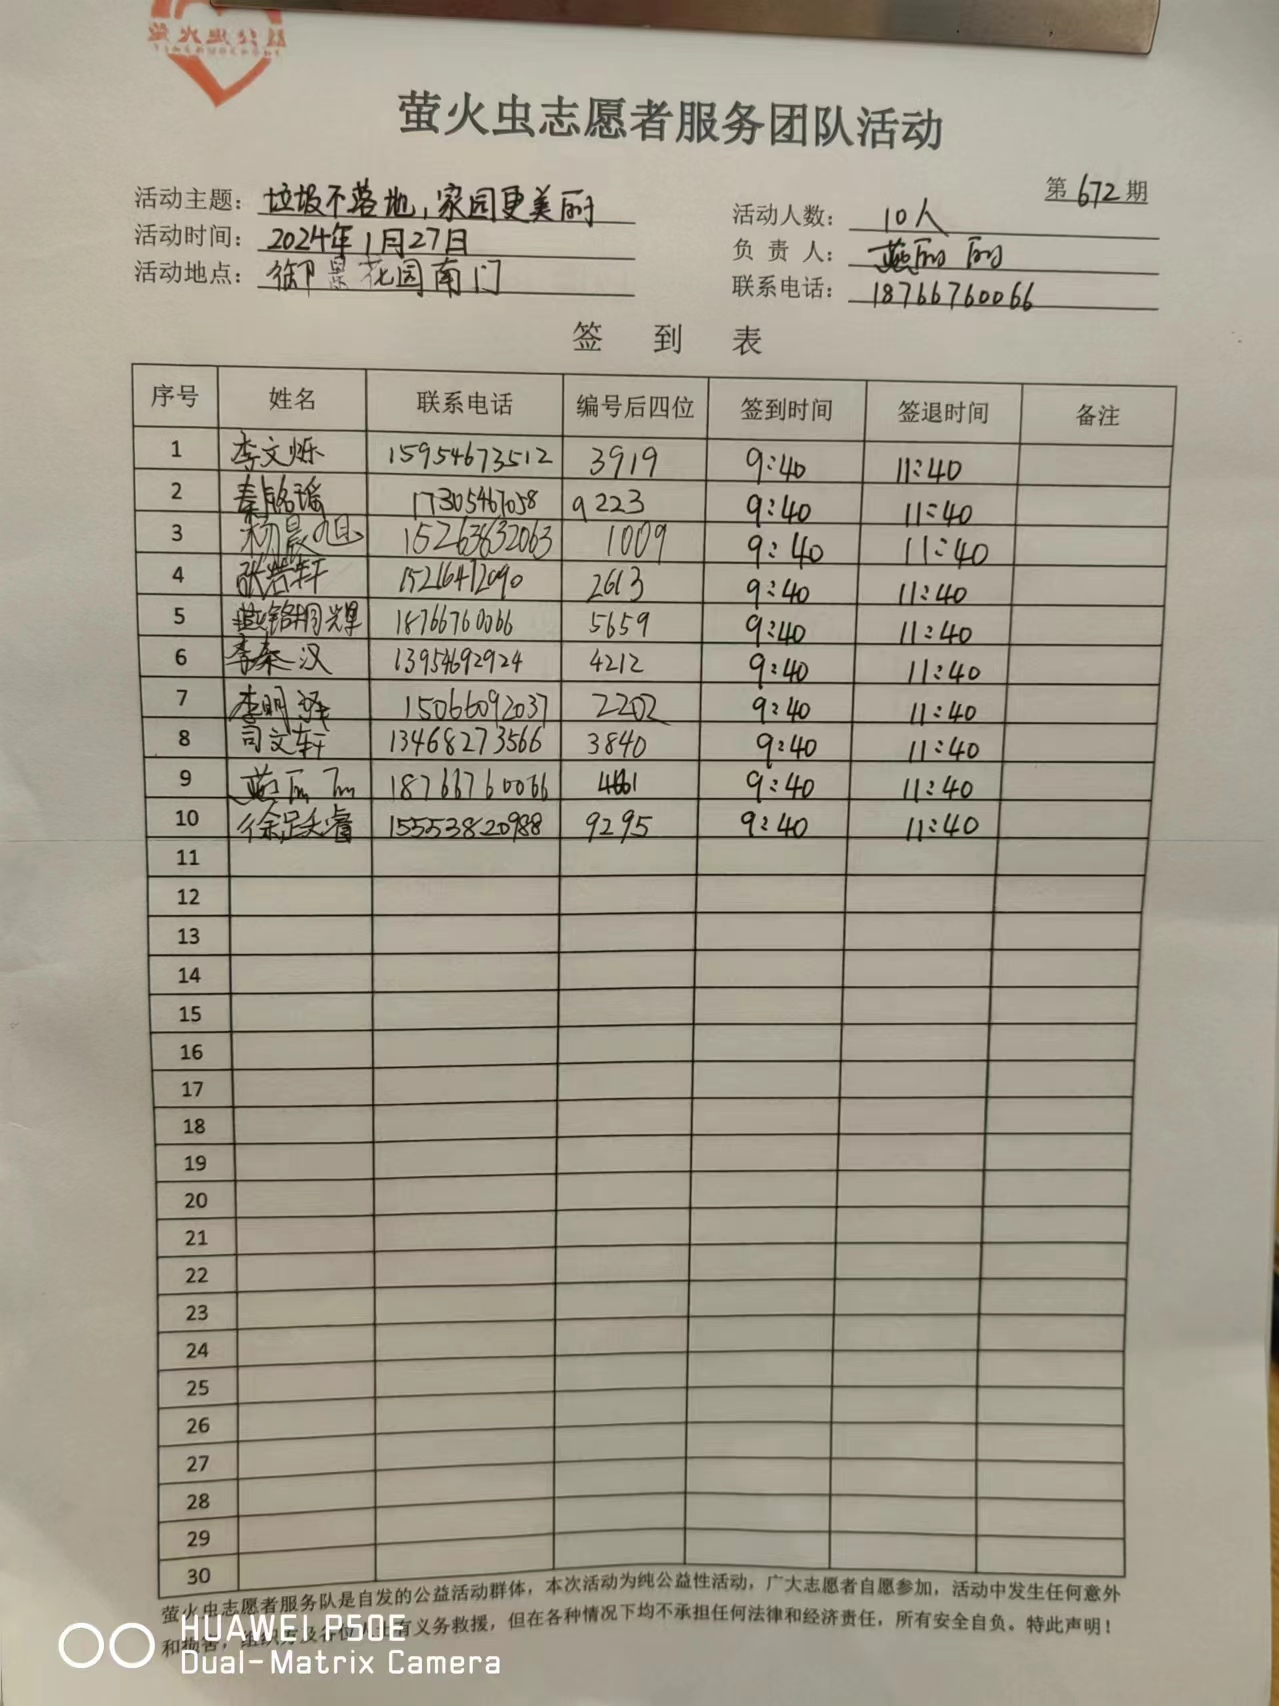 萤火虫公益
萤火虫志愿者服务团队活动
第672期
活动主题：垃圾不落地，家园更美丽
活动人数：10人
活动时间：2024年1月27日
负责人：燕丽丽
活动地点：御景花园南门
联系电话：18766760066
签到表
序号 姓名 联系电话 编号后四位 签到时间 签退时间 备注
1 李文烁 15954673512 3919 9:40 11:40
2 秦铭瑶 17305467058 9223 9:40 11:40
3 杨晨旭 15263832063 1009 9:40 11:40
4 张若轩 15216412090 2613 9:40 11:40
5 18766760066 5659 9:40 11:40
6 李秦汉 13954692924 4212 9:40 11:40
7 李明泽 15066092037 2202 9:40 11:40
8 司文轩 13468273566 3840 9:40 11:40
9 燕丽丽 18766760066 4661 9:40 11:40
10 15553820988 9295 9:40 11:40
11
12
13
14
15
16
17
18
19
20
21
22
23
24
25
26
27
28
29
30
萤火虫志愿者服务队是自发的公益活动群体，本次活动为纯公益性活动，广大志愿者自愿参加，活动中发生任何意外
和损害，组织方及各位人士有义务救援，但在各种情况下均不承担任何法律和经济责任，所有安全自负。特此声明！
HUAWEI P50E
Dual-Matrix Camera